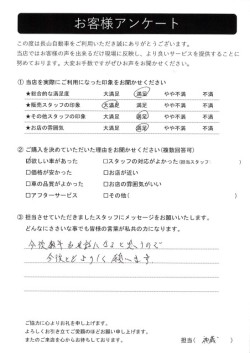 お客様アンケート
この度は良山自動車をご利用いただき誠にありがとうございます。
当店ではお客様の声を出来るだけ現場に反映し、より良いサービスを提供することに
努めております。大変お手数ですがぜひお声をお聞かせください。
① 当店を実際にご利用になった印象をお聞かせください
★総合的な満足度 大満足 満足 やや不満 不満
★販売スタッフの印象 大満足 満足 やや不満 不満
★その他スタッフの印象 大満足 満足 やや不満 不満
★お店の雰囲気 大満足 満足 やや不満 不満
② ご購入を決めていただいた理由をお聞かせください(複数回答可)
☑欲しい車があった □スタッフの対応がよかった(担当スタッフ: )
□価格が安かった □お店が近い
□車の品質がよかった □お店の雰囲気がいい
□アフターサービス □その他( )
③ 担当させていただきましたスタッフにメッセージをお願いいたします。
どんなにささいな事でも皆様の言葉が私共の力になります。
今後お世話になると思うので
今後とどよろしく願います
ご協力に心よりお礼を申し上げます。
よろしくお引き立てご愛顧のほどお願い申し上げます。
またのご来店を心からお待ちしております。
担当( )